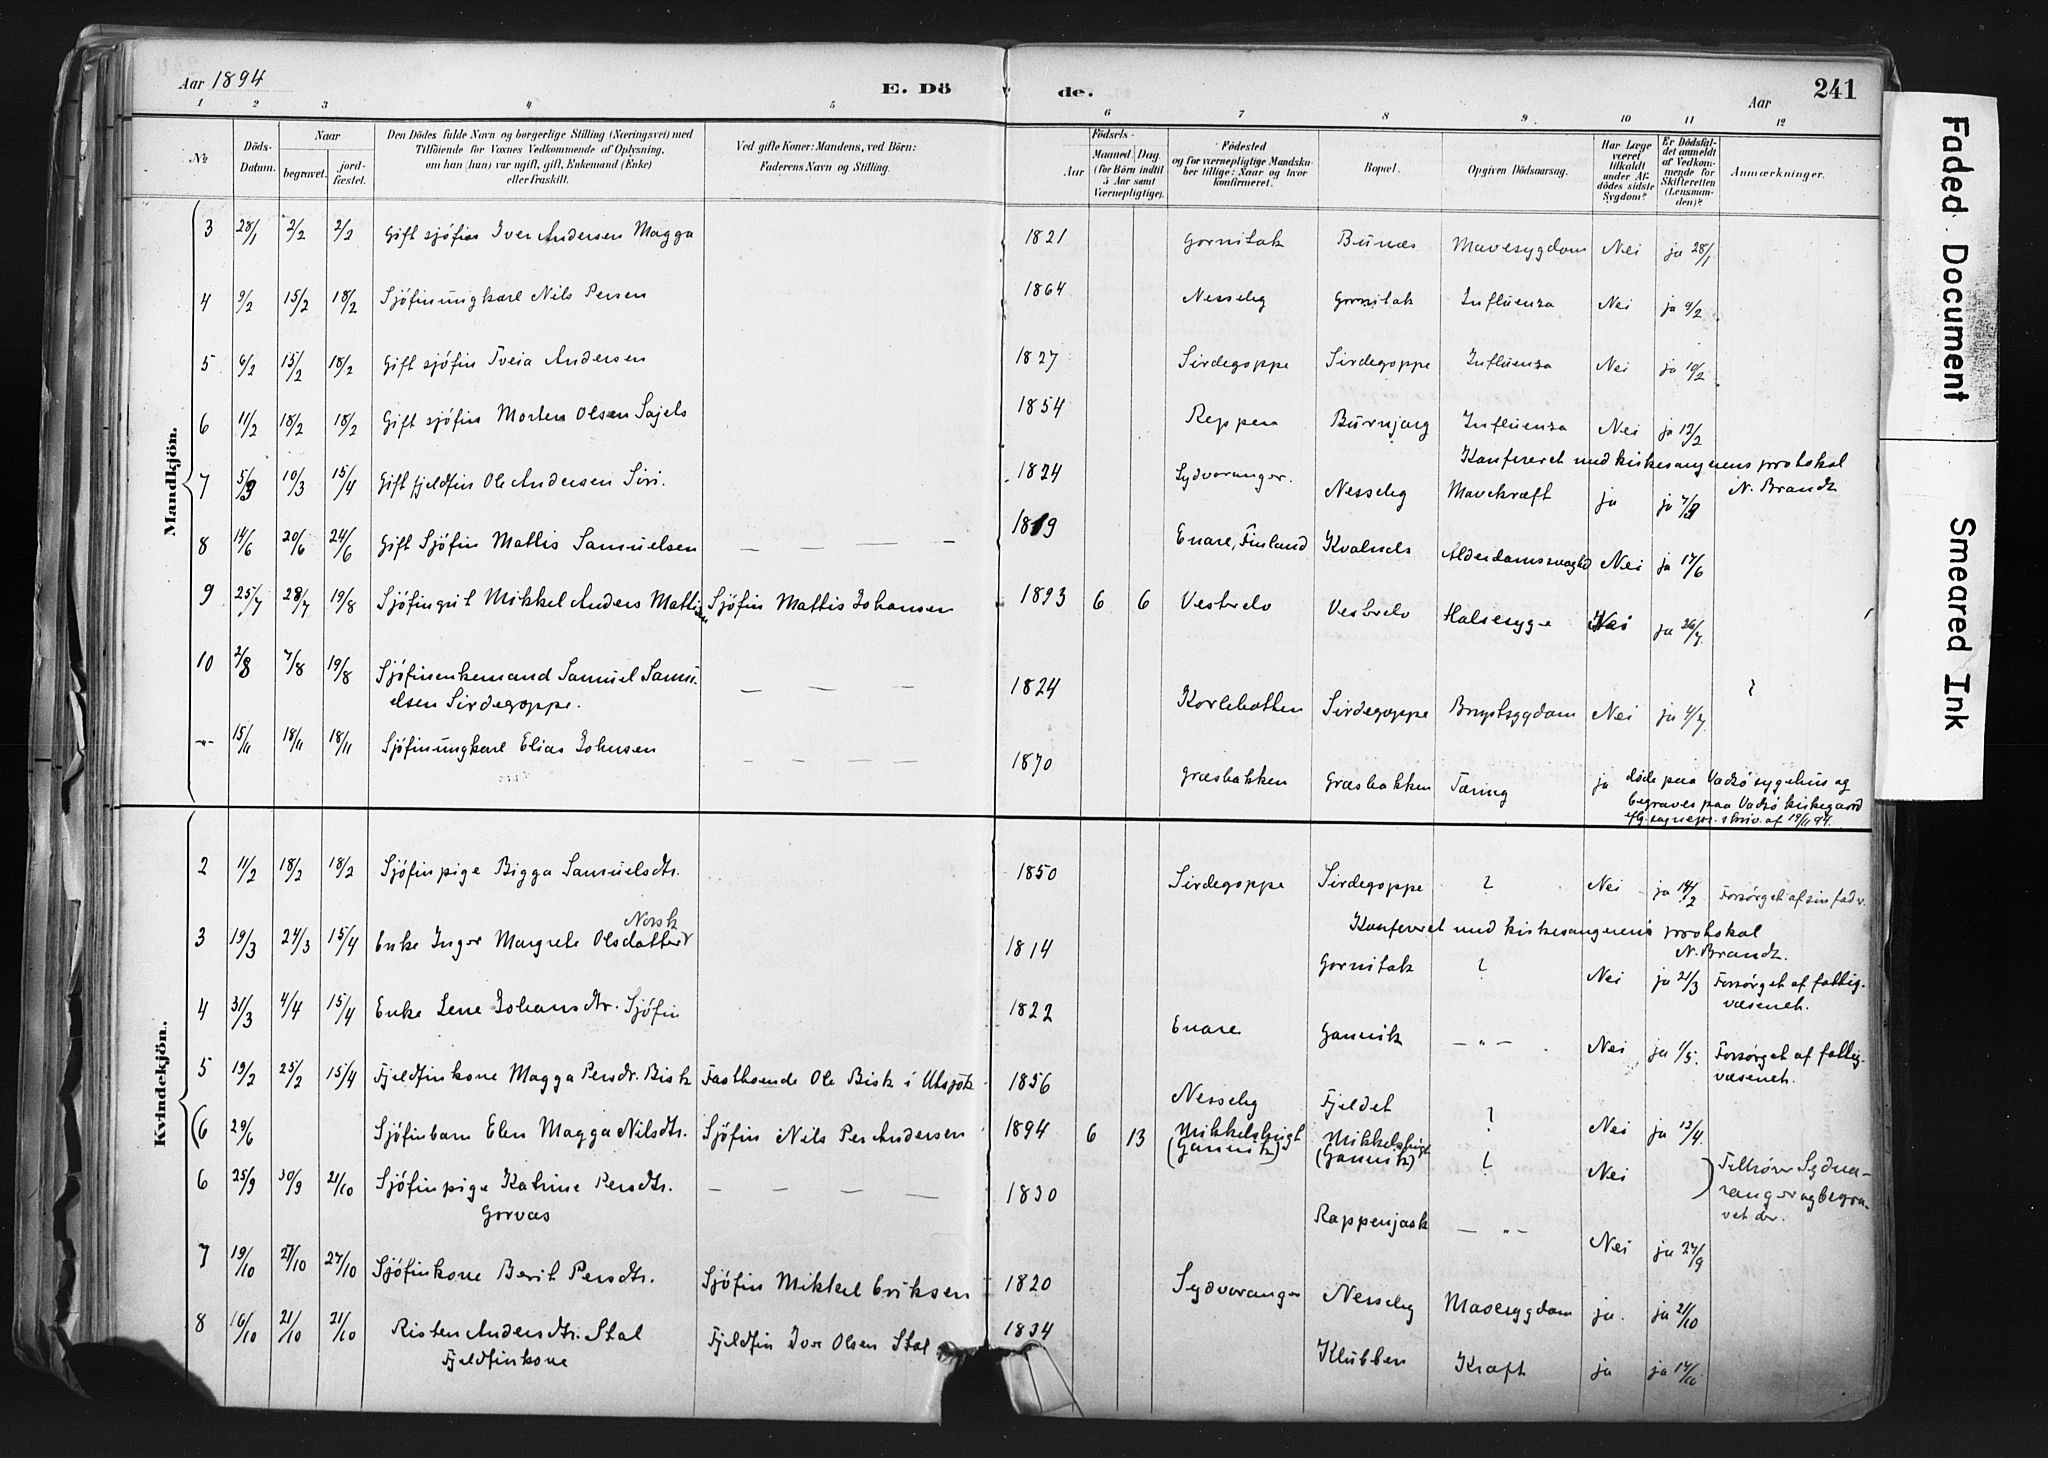 Aar 1894
E. Dö
de.
Aar
241
1 2 3 4 5 6 7 8 9 10 11 12
No
Döds-
Datum.
Naar
begravet.
jord-
fæstet.
Den Dödes fulde Navn og borgerlige Stilling (Næringsvei) med
Tilföiende for Voxnes Vedkommende af Oplysning,
om han (hun) var ugift, gift, Enkemand (Enke)
eller fraskilt.
Ved gifte Koner: Mandens, ved Börn:
Faderens Navn og Stilling.
Födsels-
Aar
Maaned. Dag.
(for Börn indtil
5 Aar samt
Værnepligtige).
Födested
og for værnepligtige Mandsku-
ber tillige: Naar og hvor
konfirmeret.
Bopæl.
Opgiven Dödsaarsag.
Har Læge
været
tilkaldt
under Af-
dödes sidste
Sygdom?
Er Dödsfal-
det anmeldt
af Vedkom-
mende for
Skifteretten
(Lensman-
den)?
Anmærkninger.
Mandkjön.
3 28/1 2/2 2/2 Gift sjöfin Iver Andersen Magga 1821 Gornitak Bunæs Mavesygdom Nei ja 28/1
4 9/2 15/2 18/2 Sjöfinungkarl Nils Persen 1864 Nesseby Gornitak Influenza Nei ja 9/2
5 6/2 15/2 18/2 Gift sjöfin Tveia Andersen 1827 Sirdegoppe Sirdegoppe Influenza Nei ja 10/2
6 11/2 18/2 18/2 Gift sjöfin Morten Olsen Sajets 1854 Reppen Burnjarg Influenza Nei ja 12/2
Konfereret med kirkesangerens protokol
N. Brandt
7 5/3 10/3 15/4 Gift fjeldfin Ole Andersen Siri. 1824 Sydvaranger. Nesseby Mavekræft ja ja 7/3
8 14/6 20/6 24/6 Gift Sjöfin Mattis Samuelsen — — — — 1819 Enare, Finland Kvalnæs Alderdomssvaghed Nei ja 17/6
9 25/7 28/7 19/8 Sjöfingut Mikkel Anders Mattisen Sjöfin Mattis Johansen 1893 6 6 Vesterelv Vesterelv Halsesyge Nei ja 26/7
10 2/8 7/8 19/8 Sjöfinenkemand Samuel Samu-
elsen Sirdegoppe. — — — 1824 Sirdegoppe Brystsygdom Nei ja 4/7 ?
-"- 15/11 18/11 18/11 Sjöfinungkarl Elias Johnsen 1870 Græsbakken Græsbakken Tæring ja døde paa Vadsø sygehus og
begraves paa Vadsø kirkegaard
skriv. af 19/11 94.
Kvindekjön.
2 11/2 18/2 18/2 Sjöfinpige Bigga Samuelsdtr. 1850 Sirdegoppe Sirdegoppe ? Nei ja 14/2 Forsörget af sin fader.
Konfereret med kirkesangerens protokol
N. Brandt.
3 19/3 24/3 15/4 Enke Inger Margrete Olsdatter Norsk 1814 Gornitak ? Nei ja 21/3 Forsörget af fattig-
væsenet.
4 31/3 4/4 15/4 Enke Lene Johansdtr. Sjöfin 1822 Enare Ganvik — " — Nei ja 1/5. Forsörget af fattig-
væsenet.
5 19/2 25/2 15/4 Fjeldfinkone Magga Persdtr. Bisk Fastboende Ole Bisk i Utsjok 1856 Nesseby Fjeldet ? Nei ja 12/4.
(6 29/6 Sjöfinbarn Elen Magga Nilsdtr. Sjöfin Nils Per Andersen 1894 6 13 Mikkelsbugt
(Ganvik) Mikkelsbugt
(Ganvik) ? Nei ) Tilhører Sydva-
ranger og begra-
vet der.
6 25/9 30/9 21/10 Sjöfinpige Katrine Persdtr.
Gorvas — — — — 1830 Rappenjask — " — Nei ja 27/9
7 19/10 27/10 27/10 Sjöfinkone Berit Persdtr. Sjöfin Mikkel Eriksen 1820 Sydvaranger Nesseby Mavesygdom ja. ja 21/10
8 16/10 21/10 21/10 Risten Andersdtr. Stal
Fjeldfinkone Fjeldfin Iver Olsen Stal 1834 Klubben Kræft ja ja 17/10
Faded Document
Smeared Ink